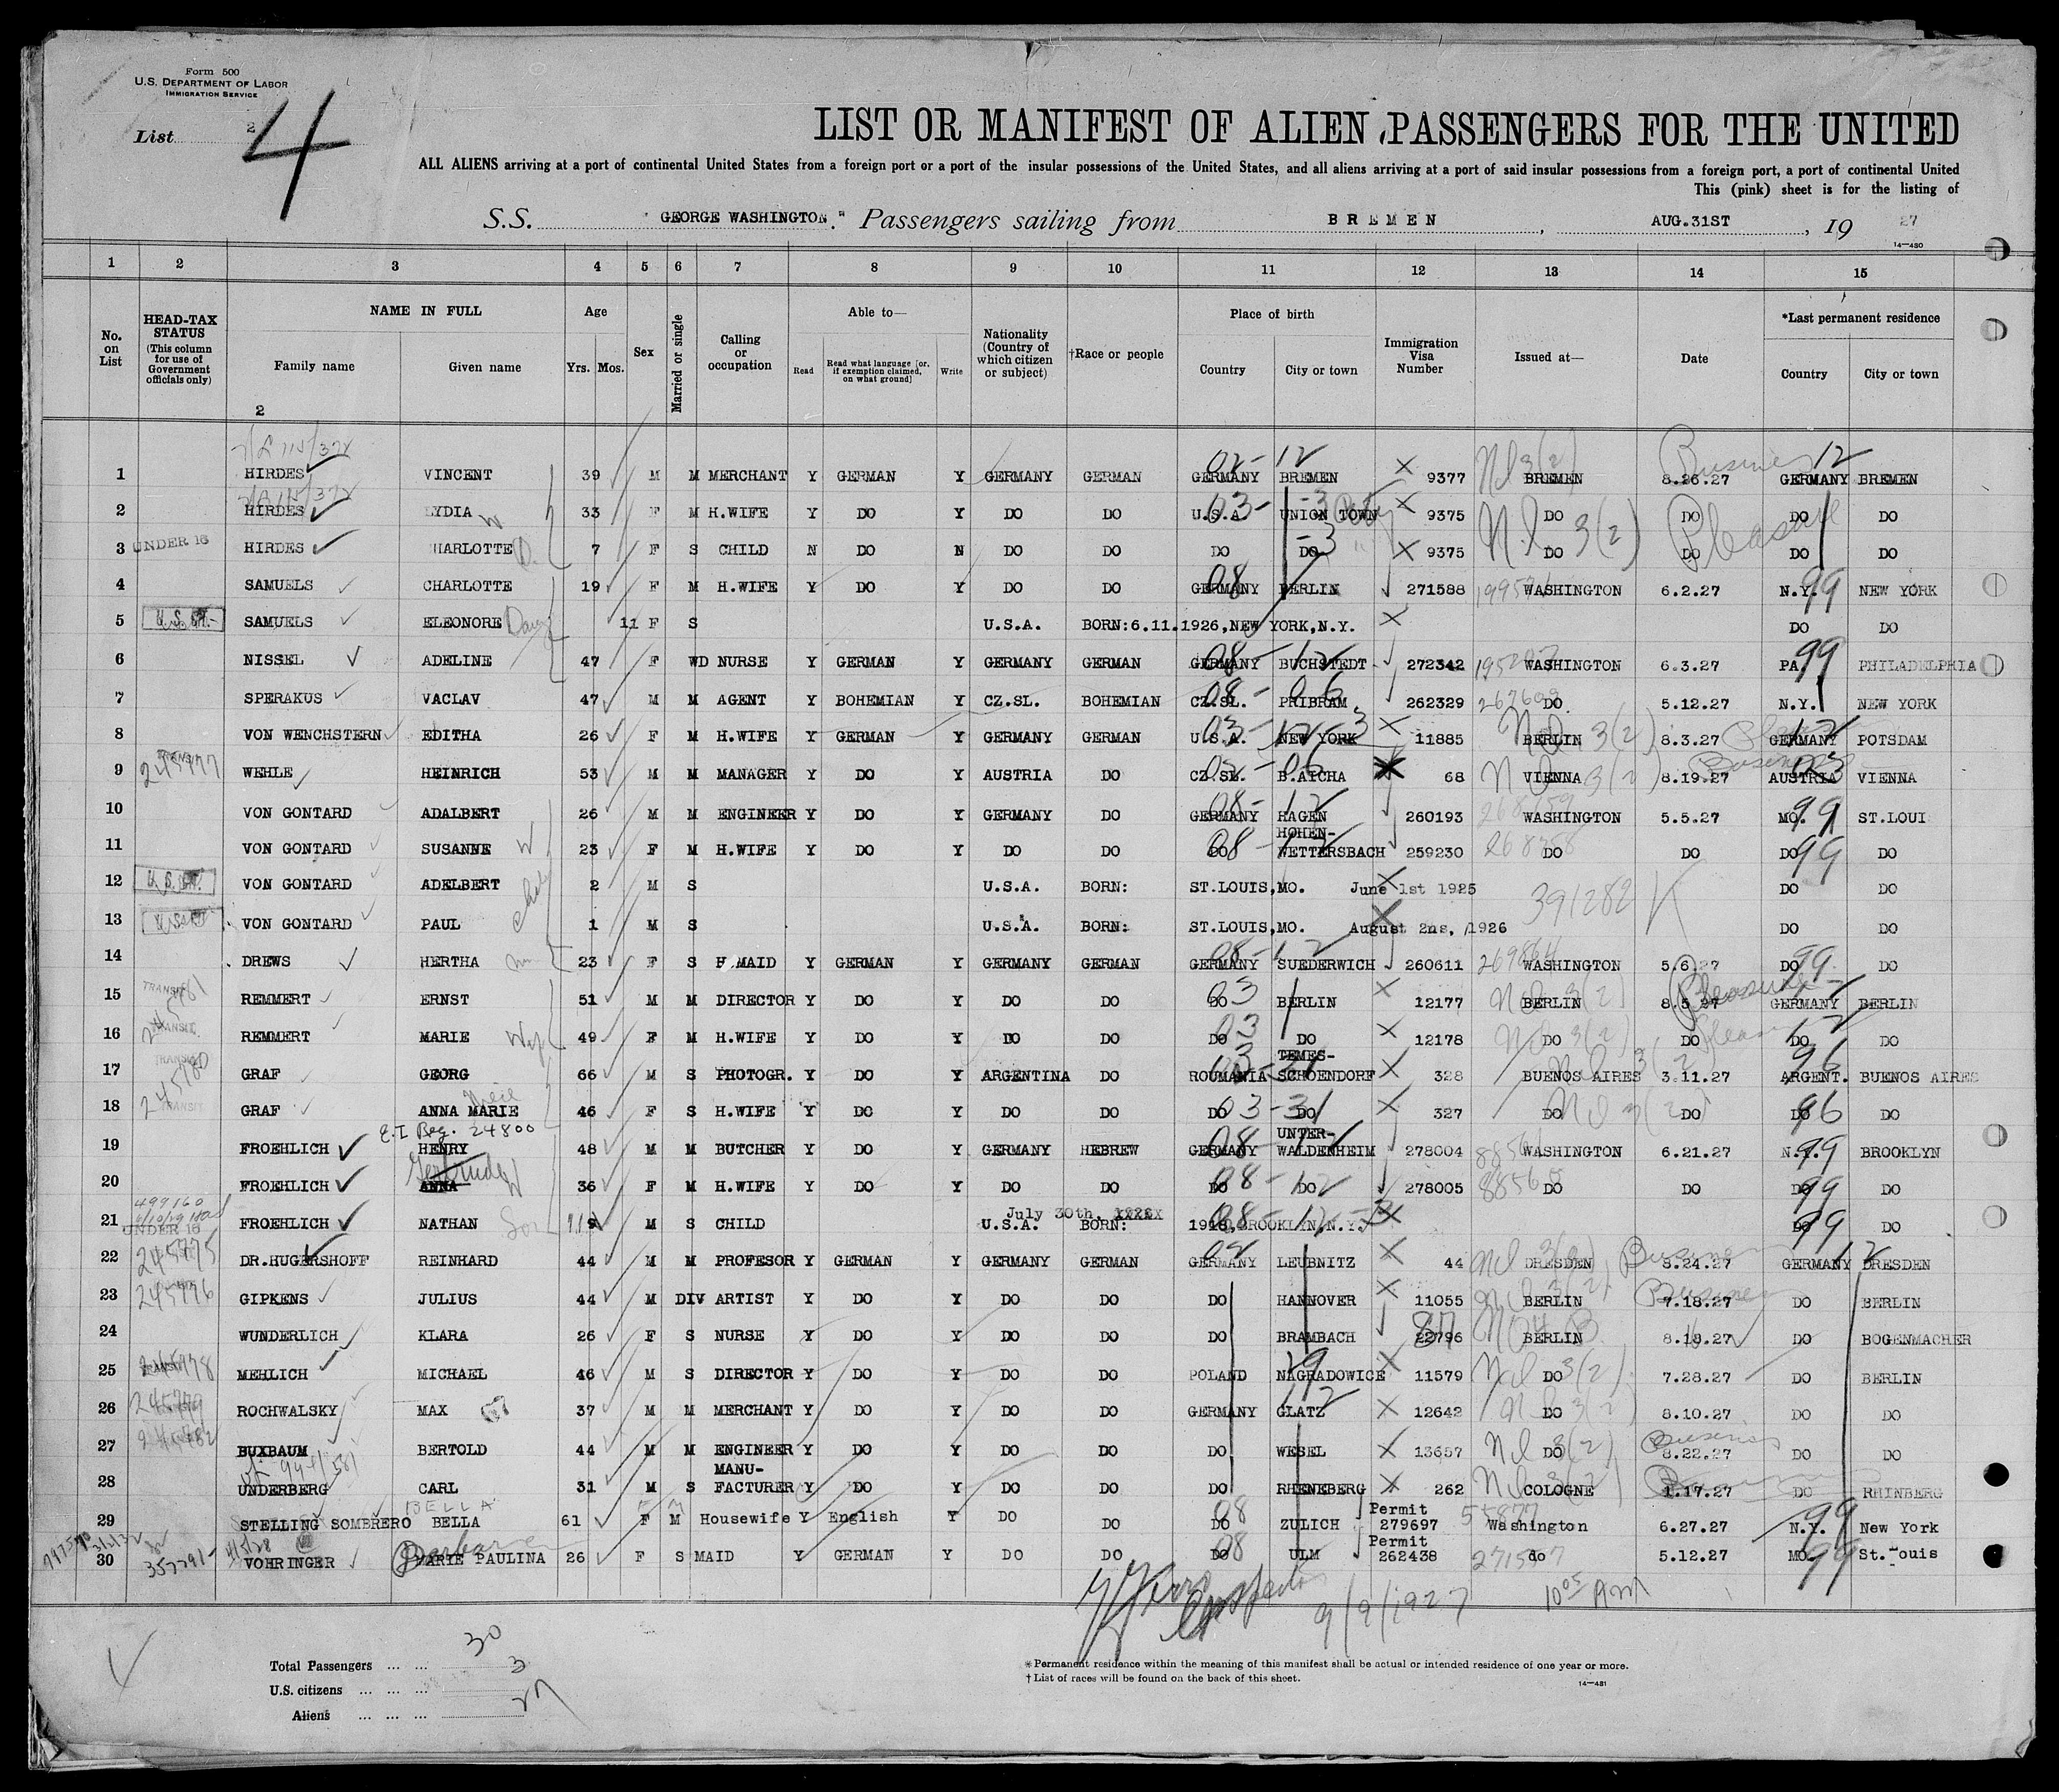 Form 500
U.S. DEPARTMENT OF LABOR
IMMIGRATION SERVICE
List 2
4
LIST OR MANIFEST OF ALIEN PASSENGERS FOR THE UNITED
ALL ALIENS arriving at a port of continental United States from a foreign port or a port of the insular possessions of the United States, and all aliens arriving at a port of said insular possessions from a foreign port, a port of continental United
This (pink) sheet is for the listing of
S.S. "GEORGE WASHINGTON." Passengers sailing from BREMEN, AUG.31ST, 19 27
14—480
1 2 3 4 5 6 7 8 9 10 11 12 13 14 15
No. on List
HEAD-TAX STATUS (This column for use of Government officials only)
NAME IN FULL
Family name Given name
2
Age Yrs. Mos.
Sex
Married or single
Calling or occupation
Able to—
Read Read what language [or, if exemption claimed, on what ground] Write
Nationality (Country of which citizen or subject)
†Race or people
Place of birth
Country City or town
Immigration Visa Number
Issued at—
Date
*Last permanent residence
Country City or town
1 HIRDES VINCENT 39 M M MERCHANT Y GERMAN Y GERMANY GERMAN GERMANY BREMEN 9377 BREMEN 8.26.27 GERMANY BREMEN
2 HIRDES LYDIA 33 F M H.WIFE Y DO Y DO DO U.S.A. UNION TOWN 9375 DO DO DO DO
3 UNDER 16 HIRDES HARLOTTE 7 F S CHILD N DO N DO DO DO DO 9375 DO DO DO DO
4 SAMUELS CHARLOTTE 19 F M H.WIFE Y DO Y DO DO GERMANY BERLIN 271588 WASHINGTON 6.2.27 N.Y. 99 NEW YORK
5 SAMUELS ELEONORE 11 F S U.S.A. BORN:6.11.1926,NEW YORK,N.Y. DO DO
6 NISSEL ADELINE 47 F WD NURSE Y GERMAN Y GERMANY GERMAN GERMANY BUCHSTEDT 272342 WASHINGTON 6.3.27 PA. 99 PHILADELPHIA
7 SPERAKUS VACLAV 47 M M AGENT Y BOHEMIAN Y CZ.SL. BOHEMIAN CZ.SL. PRIBRAM 262329 DO 5.12.27 N.Y. NEW YORK
8 VON WENCHSTERN EDITHA 26 F M H.WIFE Y GERMAN Y GERMANY GERMAN U.S.A. NEW YORK 11885 BERLIN 8.3.27 GERMANY POTSDAM
9 WEHLE HEINRICH 53 M M MANAGER Y DO Y AUSTRIA DO CZ.SL. B.AICHA 68 VIENNA 8.19.27 AUSTRIA VIENNA
10 VON GONTARD ADALBERT 26 M M ENGINEER Y DO Y GERMANY DO GERMANY HAGEN 260193 WASHINGTON 5.5.27 MO. 99 ST.LOUI
11 VON GONTARD SUSANNE W 23 F M H.WIFE Y DO Y DO DO DO HOHEN-WETTERSBACH 259230 DO DO DO 99 DO
12 VON GONTARD ADELBERT 2 M S U.S.A. BORN: ST.LOUIS,MO. June 1st 1925 DO DO
13 VON GONTARD PAUL 1 M S U.S.A. BORN: ST.LOUIS,MO. August 2ns, 1926 391282 DO DO
14 DREWS HERTHA 23 F S H.MAID Y GERMAN Y GERMANY GERMAN GERMANY SUEDERWICH 260611 WASHINGTON 5.6.27 DO 99 DO
15 TRANSIT REMMERT ERNST 51 M M DIRECTOR Y DO Y DO DO DO BERLIN 12177 BERLIN 8.5.27 GERMANY BERLIN
16 TRANSIT REMMERT MARIE 49 F M H.WIFE Y DO Y DO DO DO DO 12178 DO DO DO DO
17 TRANSIT GRAF GEORG 66 M S PHOTOGR. Y DO Y ARGENTINA DO ROUMANIA TEMES-SCHOENDORF 328 BUENOS AIRES 3.11.27 ARGENT. BUENOS AIRES
18 TRANSIT GRAF ANNA MARIE 46 F S H.WIFE Y DO Y DO DO DO DO 327 DO DO DO DO
E.I Beg. 24800
19 FROEHLICH HENRY 48 M M BUTCHER Y DO Y GERMANY HEBREW GERMANY UNTER-WALDENHEIM 278004 WASHINGTON 6.21.27 N.Y. BROOKLYN
20 FROEHLICH ANNA Gertrude W 36 F M H.WIFE Y DO Y DO DO DO DO 278005 DO DO DO 99 DO
21 UNDER 16 FROEHLICH NATHAN M S CHILD U.S.A. July 30th, BORN: 1918,BROOKLYN,N.Y. DO DO
22 245775 DR.HUGERSHOFF REINHARD 44 M M PROFESOR Y GERMAN Y GERMANY GERMAN GERMANY LEUBNITZ 44 DRESDEN 8.24.27 GERMANY DRESDEN
23 245776 GIPKENS JULIUS 44 M DIV ARTIST Y DO Y DO DO DO HANNOVER 11055 BERLIN 7.18.27 DO BERLIN
24 WUNDERLICH KLARA 26 F S NURSE Y DO Y DO DO DO BRAMBACH 22796 BERLIN 8.19.27 DO BOGENMACHER
25 MEHLICH MICHAEL 46 M S DIRECTOR Y DO Y DO DO POLAND NAGRADOWICE 11579 DO 7.28.27 DO BERLIN
26 ROCHWALSKY MAX 37 M M MERCHANT Y DO Y DO DO GERMANY GLATZ 12642 DO 8.10.27 DO DO
27 BUXBAUM BERTOLD 44 M M ENGINEER Y DO Y DO DO DO WESEL 13657 DO 8.22.27 DO DO
28 UNDERBERG CARL 31 M S MANU-FACTURER Y DO Y DO DO DO RHENEBERG 262 COLOGNE 1.17.27 DO RHINBERG
29 STELLING SOMBRERO BELLA 61 F M Housewife Y English Y DO DO DO ZULICH Permit 279697 Washington 6.27.27 N.Y. 99 New York
30 VOHRINGER MARIE PAULINA Barbara 26 F S MAID Y GERMAN Y DO DO DO ULM Permit 262438 do 5.12.27 MO. 99 St. ouis
9/9/1927 10 05 AM
Total Passengers ... ... 30
U.S. citizens ... ... ... 3
Aliens ... ... ... 27
*Permanent residence within the meaning of this manifest shall be actual or intended residence of one year or more.
†List of races will be found on the back of this sheet.
14—481